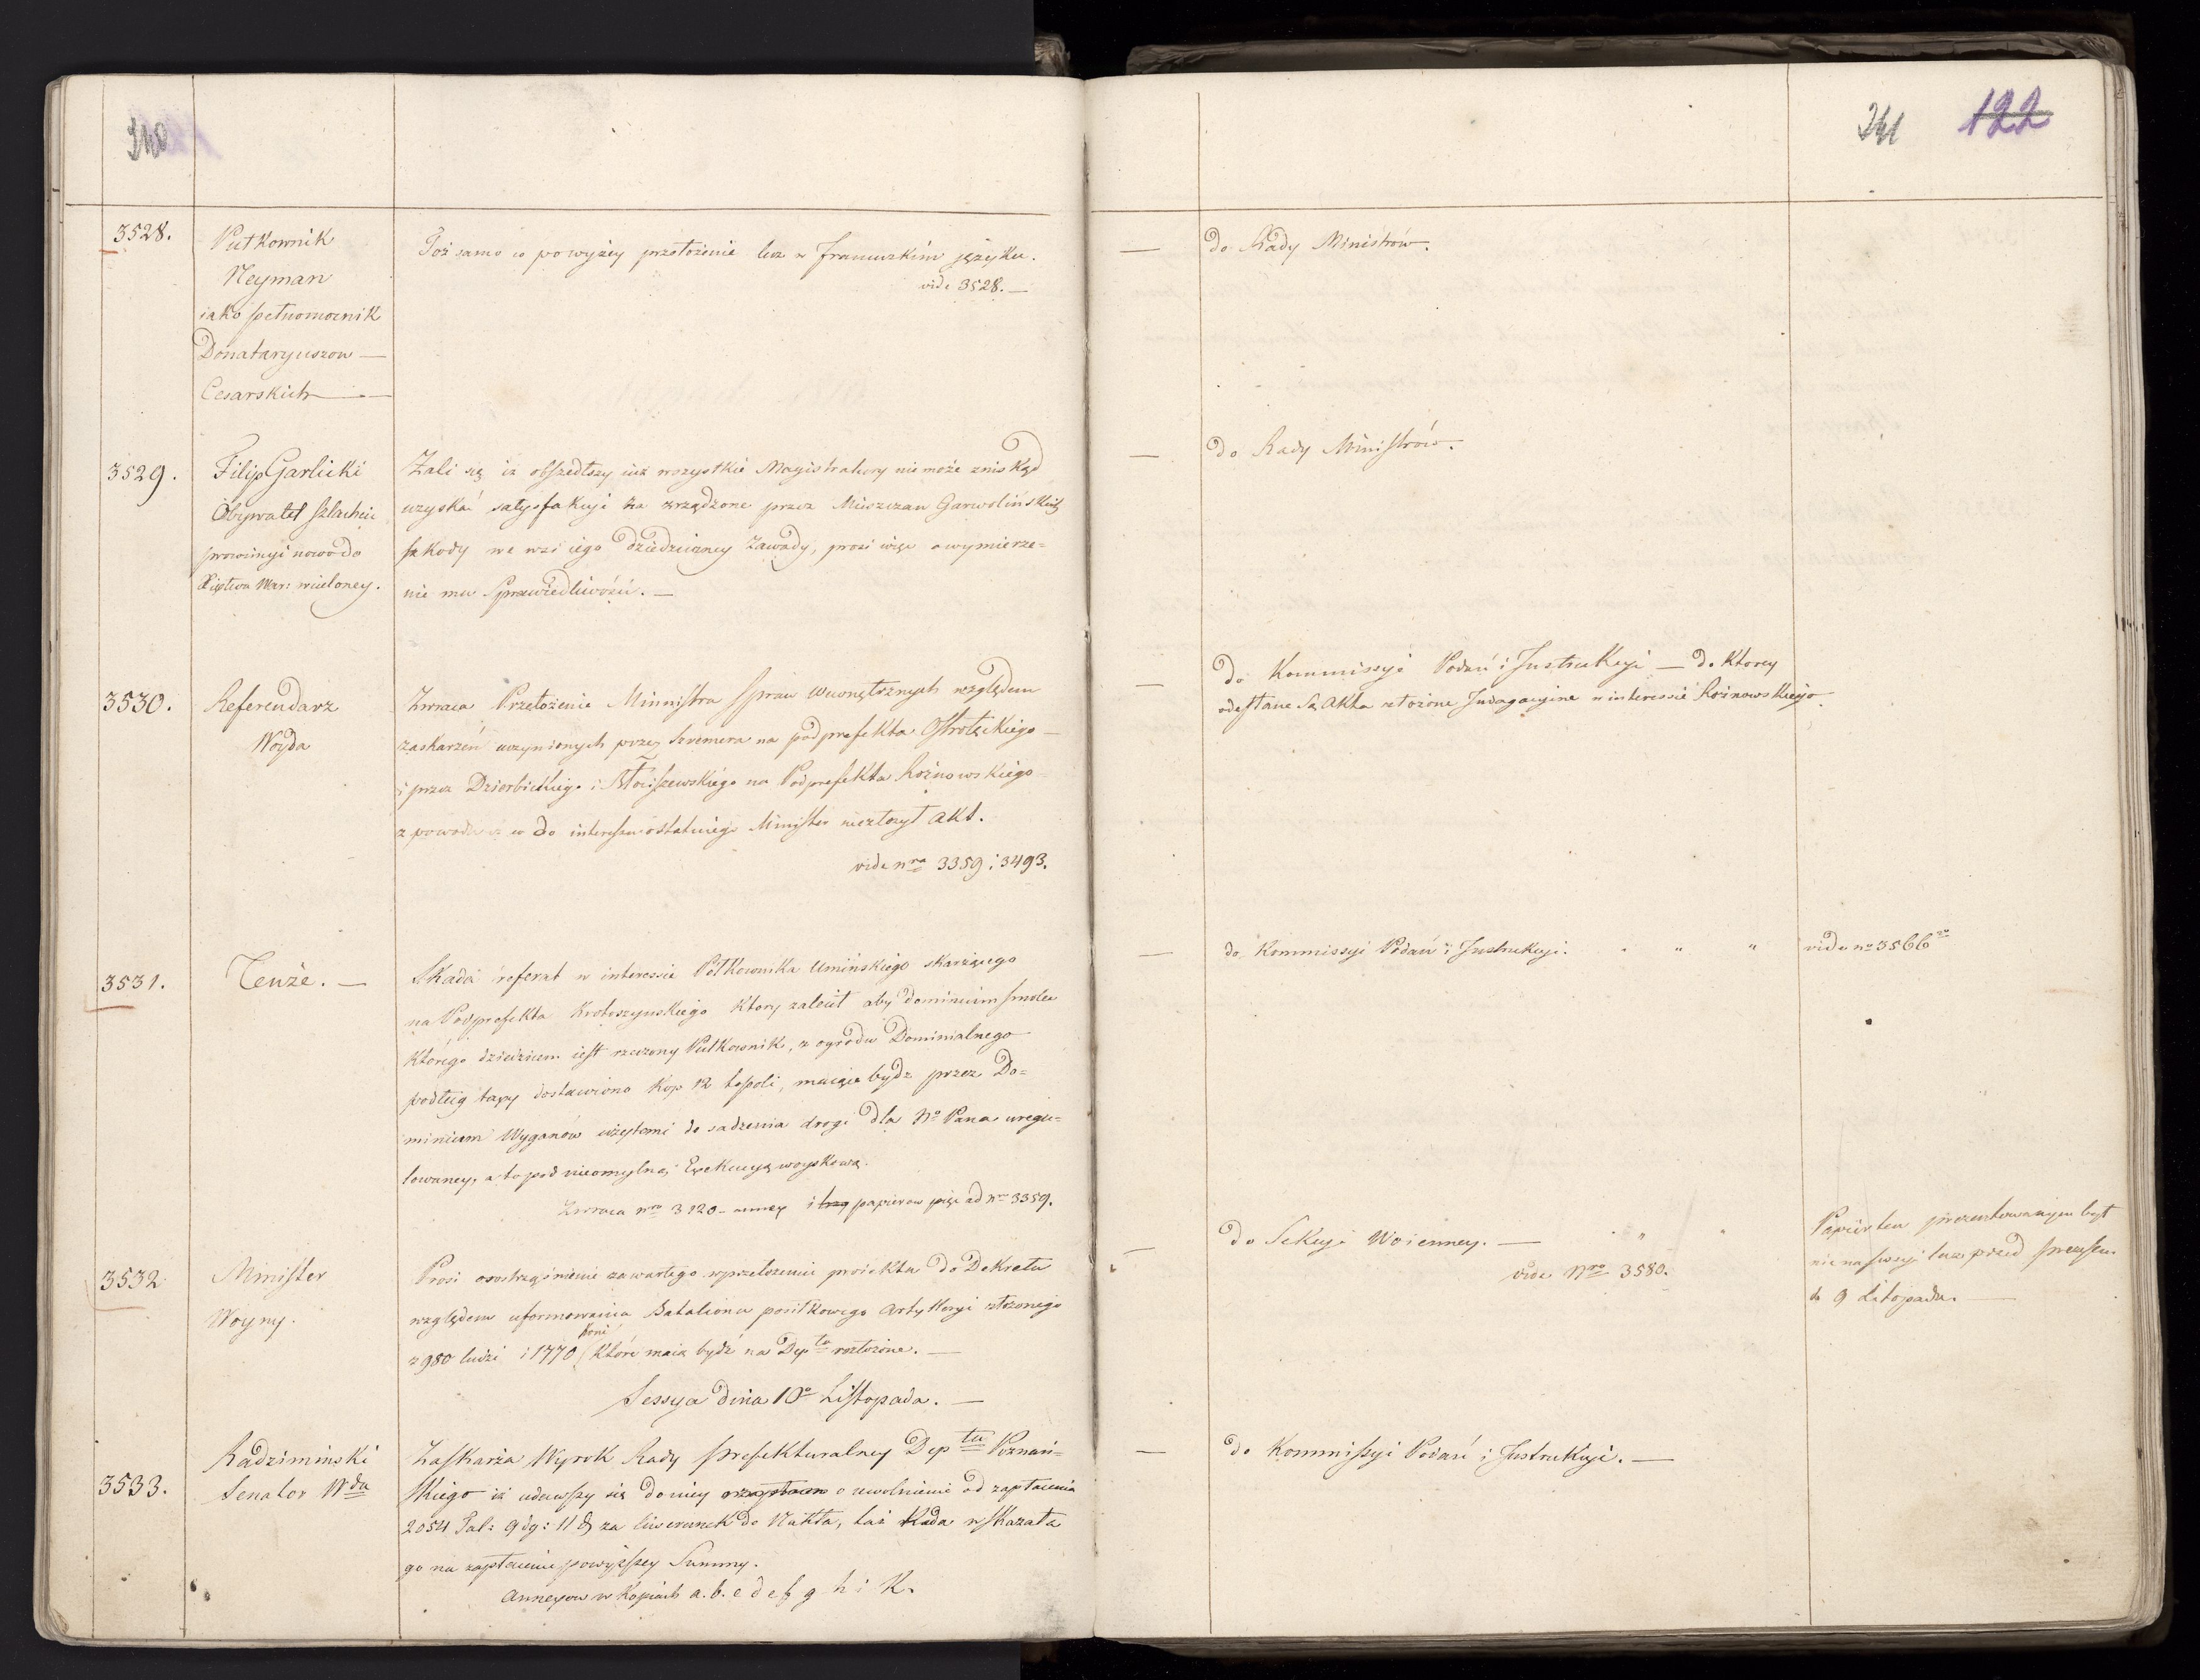 340
241 122
3528.
Pułkownik
Neyman
iako pełnomocnik
Donataryuszow —
Cesarskich —
Toż samo co powyżey przełożenie lecz w francuzkim języku.
vide 3528. —
— do Rady Ministrów.
3529.
Filip Garlicki
Obywatel szlachcic
prowincyi nowo do
Xięstwa War: wcieloney.
Żali się iż obszedłszy iuż wszystkie Magistratury nie może znis kąd
uzyskać satysfakcyi za zrządzone przez Mieszczan Garwolińskich
szkody we wsi iego dziedziczney Zawady, prosi więc o wymierze=
nie mu Sprawiedliwości. —
— do Rady Ministrów.
3530.
Referendarz
Woyda
Zwraca Przełożenie Ministra Spraw Wewnętrznych względem
zaskarżeń uczynionych przez Szremera na podprefekta Ostrołęckiego —
i przez Dzierbickiego i Słociszewskiego na Podprefekta Rożnowskiego
z powodu iż co do interessu ostatniego Minister niezłożył akt.
vide nra 3359 i 3493.
— do Kommissyi Podań i Instrukcyi — do ktorey
odesłane są akta złożone Indagacyine w interessie Rożnowskiego.
3531.
Tenże. —
Składa referat w interessie Półkownika Umińskiego skarżącego
na Podprefekta Krotoszynskiego ktory zalecił aby dominium Smolec
którego dziedzicem iest rzeczony Pułkownik, z ogrodu Dominialnego
podług taxy dostawiono kop 12 topoli, maiące bydz przez Do=
minium Wyganów użytemi do sadzenia drogi dla No Pana uregu=
lowaney, a to pod nieomylną Exekucyą woyskową.
Zwraca nro 3120 — annex i trzy papierow pięć ad nro 3359.
— do Kommissyi Podań i Instrukcyi. " " "
vide no 3566
3532
Minister
Woyny.
Prosi o rostrząśnienie zawartego w przełożeniu proiektu do Dekretu
względem uformowania Bataliona posiłkowego Artylleryi złożonego
koni
z 980 ludzi i 1770 które maią bydź na Depta rozłożone. —
— do Sekcyi Woienney. — " "
vide Nro 3580.
Papier ten prezentowanym był
nie na sessyi lecz przed Prezesem
d. 9 Listopada. —
Sessya dnia 10o Listopada. —
3533.
Radziminski
Senator Wda
Zaskarża Wyrok Rady Prefekturalney Deptu Poznań=
skiego iż udawszy się do niey o zapłacen o uwolnienie od zapłacenia
2054 Tal: 9 dg: 11 za liwerunek do Nakła, taż Rada wskazała
go na zapłacenie powyższey Summy.
Annexow w kopiach a. b. c d e f g h i K.
— do Kommissyi Podań i Instrukcyi. —